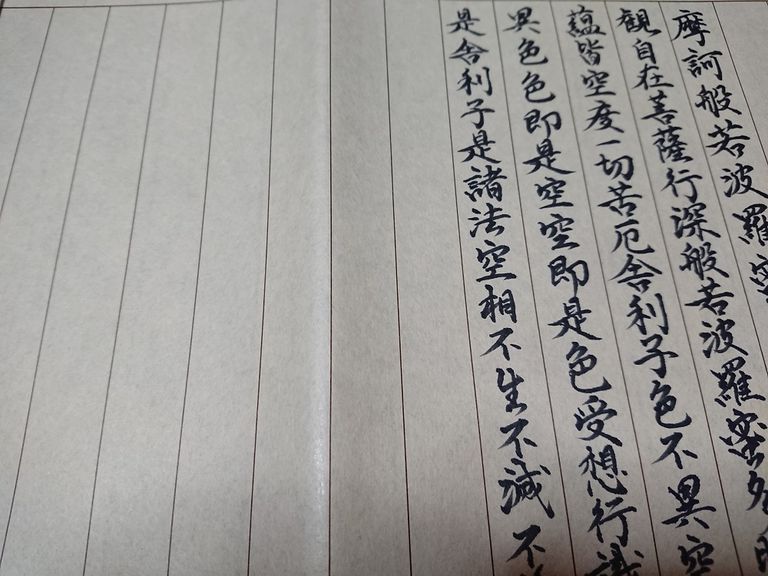 摩訶般若波羅蜜
観自在菩薩行深般若波羅蜜多時
蘊皆空度一切苦厄舎利子色不異空
異色色即是空空即是色受想行識
是舎利子是諸法空相不生不滅不